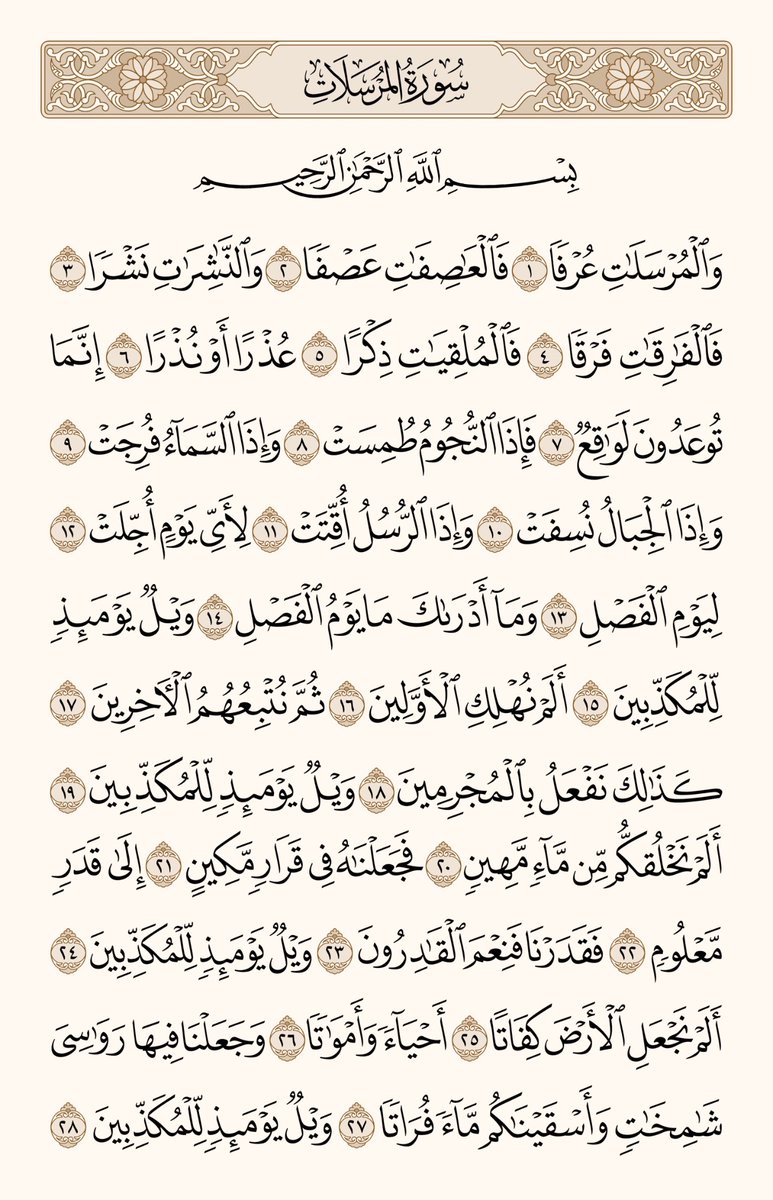 سُورَةُ الْمُرْسَلَاتِ
بِسْمِ ٱللَّهِ ٱلرَّحْمَٰنِ ٱلرَّحِيمِ
وَٱلْمُرْسَلَٰتِ عُرْفًا ١ فَٱلْعَٰصِفَٰتِ عَصْفًا ٢ وَٱلنَّٰشِرَٰتِ نَشْرًا ٣
فَٱلْفَٰرِقَٰتِ فَرْقًا ٤ فَٱلْمُلْقِيَٰتِ ذِكْرًا ٥ عُذْرًا أَوْ نُذْرًا ٦ إِنَّمَا
تُوعَدُونَ لَوَٰقِعٌ ٧ فَإِذَا ٱلنُّجُومُ طُمِسَتْ ٨ وَإِذَا ٱلسَّمَآءُ فُرِجَتْ ٩
وَإِذَا ٱلْجِبَالُ نُسِفَتْ ١٠ وَإِذَا ٱلرُّسُلُ أُقِّتَتْ ١١ لِأَيِّ يَوْمٍ أُجِّلَتْ ١٢
لِيَوْمِ ٱلْفَصْلِ ١٣ وَمَآ أَدْرَىٰكَ مَا يَوْمُ ٱلْفَصْلِ ١٤ وَيْلٌ يَوْمَئِذٍ
لِّلْمُكَذِّبِينَ ١٥ أَلَمْ نُهْلِكِ ٱلْأَوَّلِينَ ١٦ ثُمَّ نُتْبِعُهُمُ ٱلْـَٔاخِرِينَ ١٧
كَذَٰلِكَ نَفْعَلُ بِٱلْمُجْرِمِينَ ١٨ وَيْلٌ يَوْمَئِذٍ لِّلْمُكَذِّبِينَ ١٩
أَلَمْ نَخْلُقكُّم مِّن مَّآءٍ مَّهِينٍ ٢٠ فَجَعَلْنَٰهُ فِى قَرَارٍ مَّكِينٍ ٢١ إِلَىٰ قَدَرٍ
مَّعْلُومٍ ٢٢ فَقَدَرْنَا فَنِعْمَ ٱلْقَٰدِرُونَ ٢٣ وَيْلٌ يَوْمَئِذٍ لِّلْمُكَذِّبِينَ ٢٤
أَلَمْ نَجْعَلِ ٱلْأَرْضَ كِفَاتًا ٢٥ أَحْيَآءً وَأَمْوَٰتًا ٢٦ وَجَعَلْنَا فِيهَا رَوَٰسِىَ
شَٰمِخَٰتٍ وَأَسْقَيْنَٰكُم مَّآءً فُرَاتًا ٢٧ وَيْلٌ يَوْمَئِذٍ لِّلْمُكَذِّبِينَ ٢٨